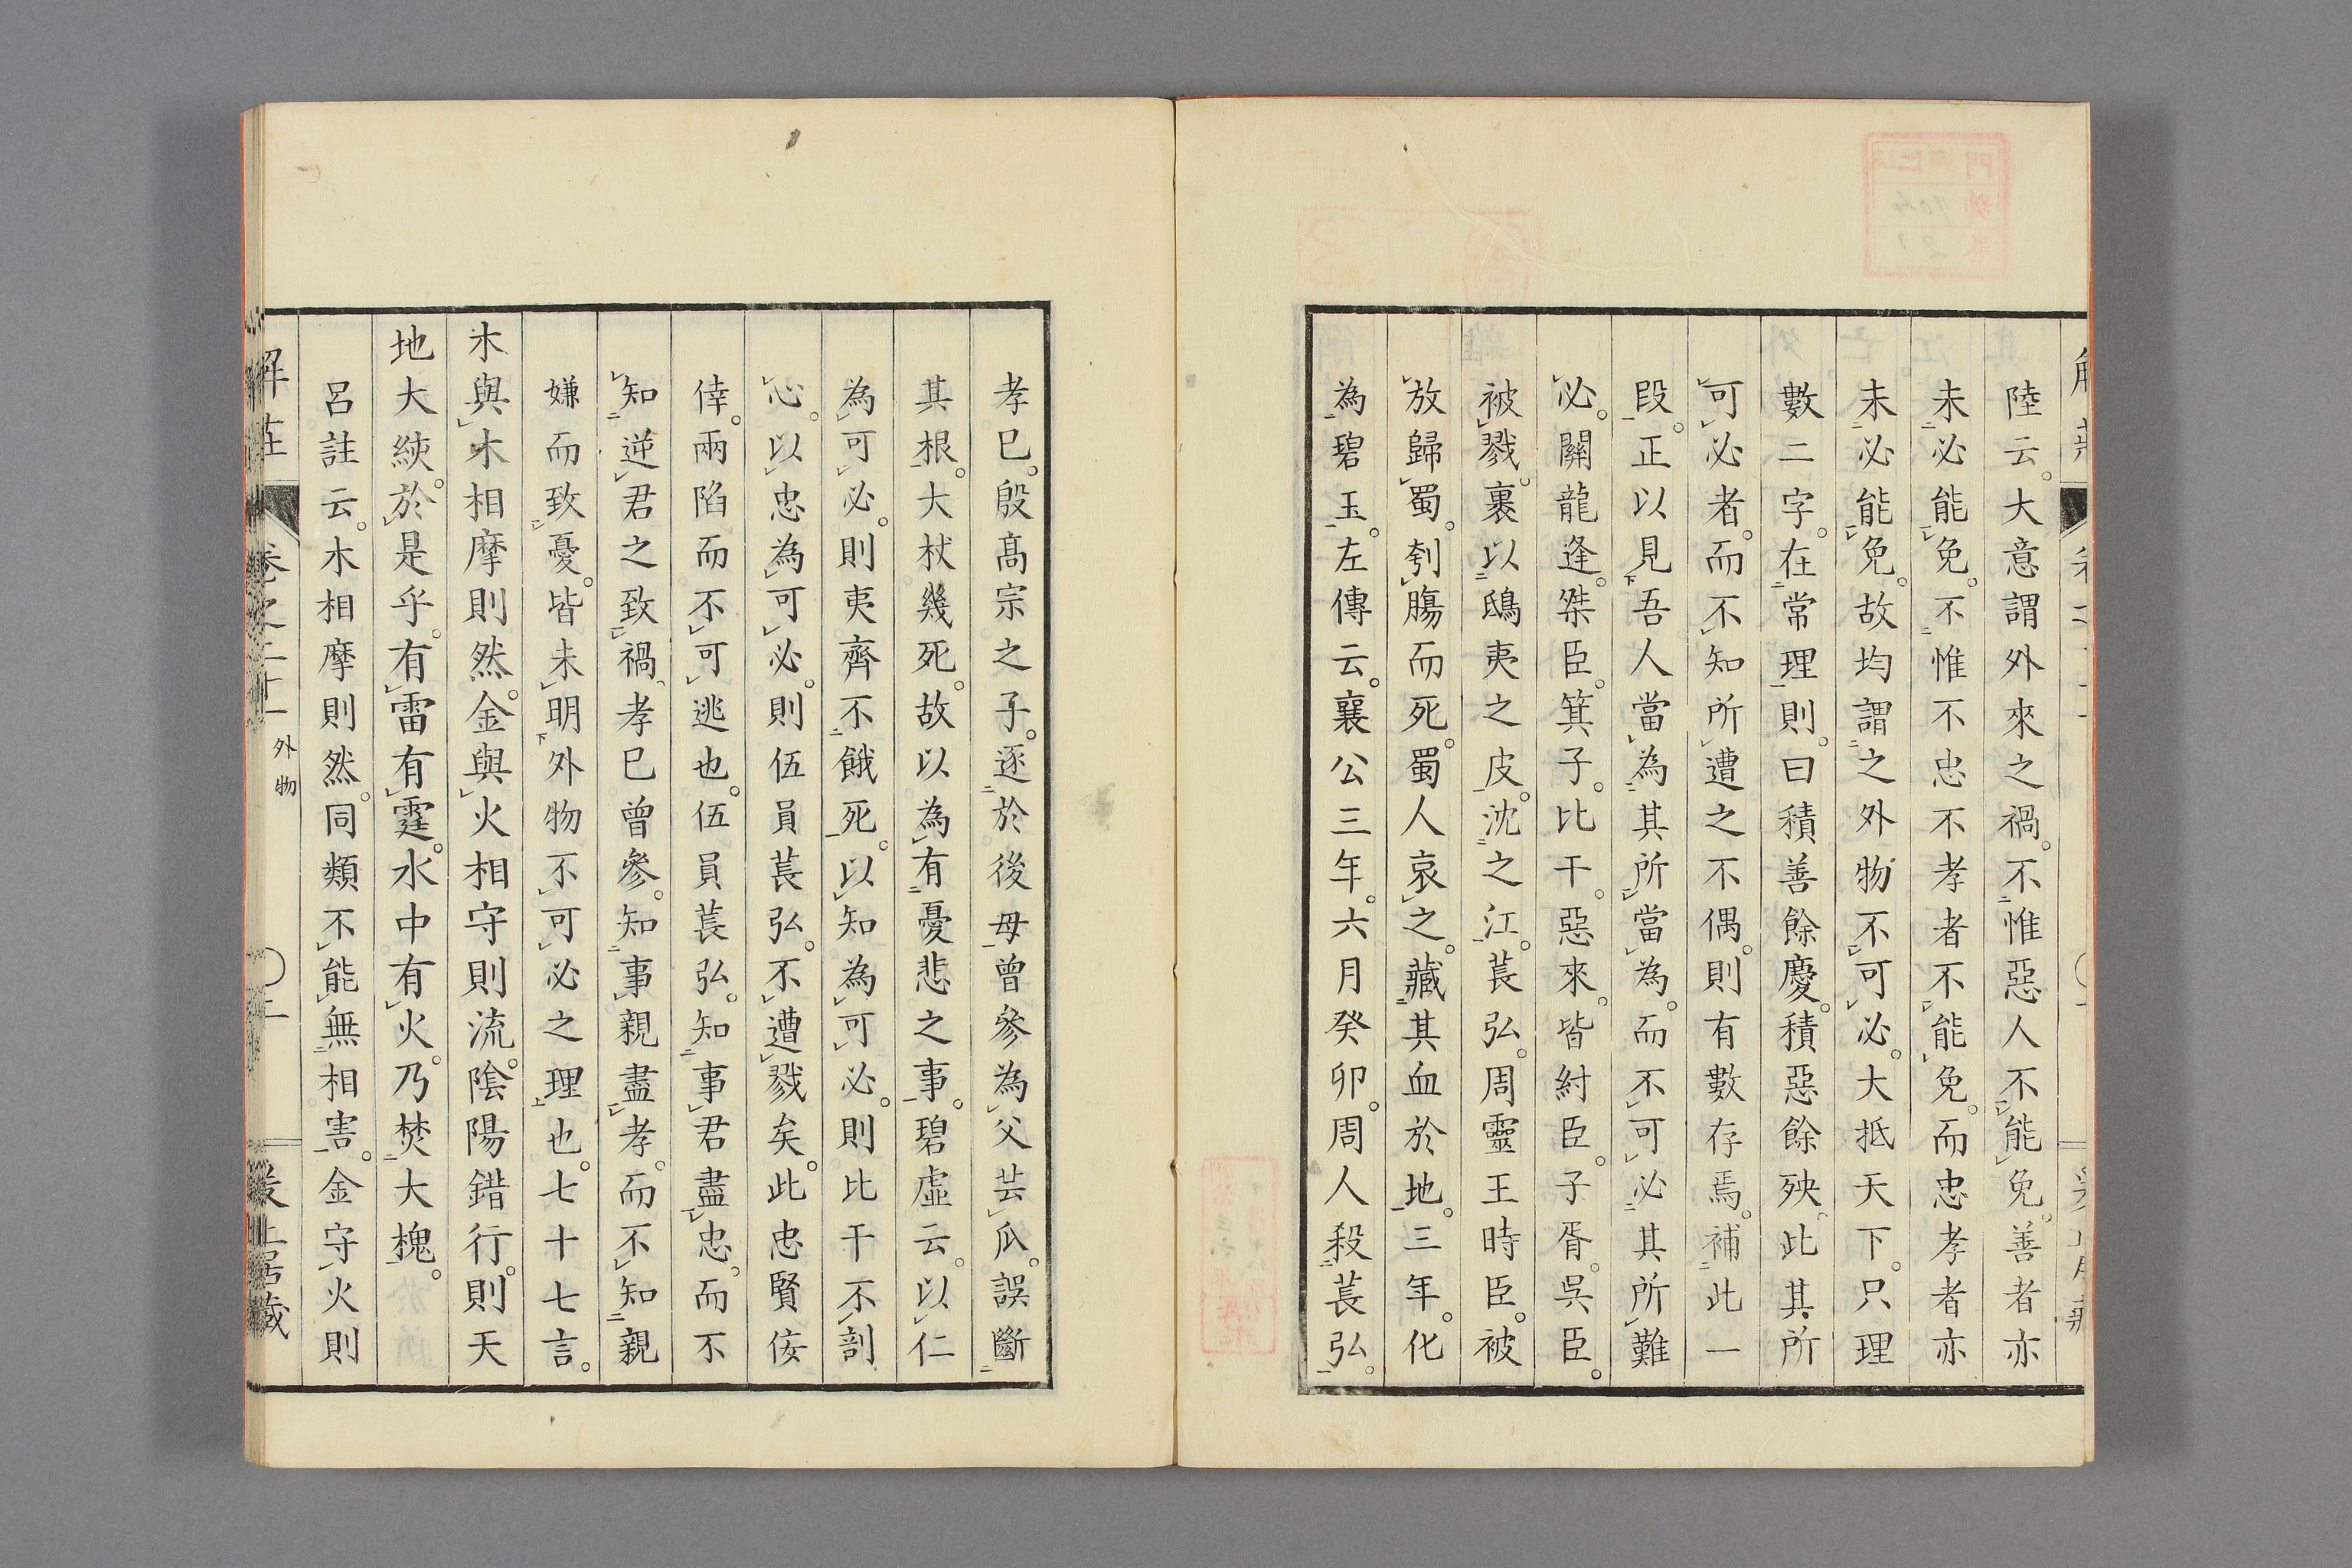 陸云。大意謂外來之禍。不惟惡人不能免。善者亦
未必能免。不惟不忠不孝者不能免。而忠孝者亦
未必能免。故均謂之外物不可必。大抵天下。只理
數二字。在常理則。曰積善餘慶。積惡餘殃。此其所
可必者。而不知所遭之不偶。則有數存焉。補此一
段。正以見吾人當為其所當為。而不可必其所難
必。關龍逢。桀臣。箕子。比干。惡來。皆紂臣。子胥。吳臣。
被戮。裹以鴟夷之皮。沈之江。萇弘。周靈王時臣。被
放歸蜀。刳腸而死。蜀人哀之。藏其血於地。三年。化
為碧玉。左傳云。襄公三年。六月癸卯。周人殺萇弘。
孝已。殷高宗之子。逐於後母。曾參為父芸瓜。誤斷
其根。大杖幾死。故以為有憂悲之事。碧虛云。以仁
為可必。則夷齊不餓死。以知為可必。則比干不剖
心。以忠為可必。則伍員萇弘。不遭戮矣。此忠賢侫
倖。兩陷而不可逃也。伍員萇弘。知事君盡忠。而不
知逆君之致禍。孝已曾參。知事親盡孝。而不知親
嫌而致憂。皆未明外物不可必之理也。七十七言。
木與木相摩則然。金與火相守則流。陰陽錯行。則天
地大絯。於是乎。有雷有霆。水中有火。乃焚大槐。
呂註云。木相摩則然。同類不能無相害。金守火則
解莊
卷之二十一
外物